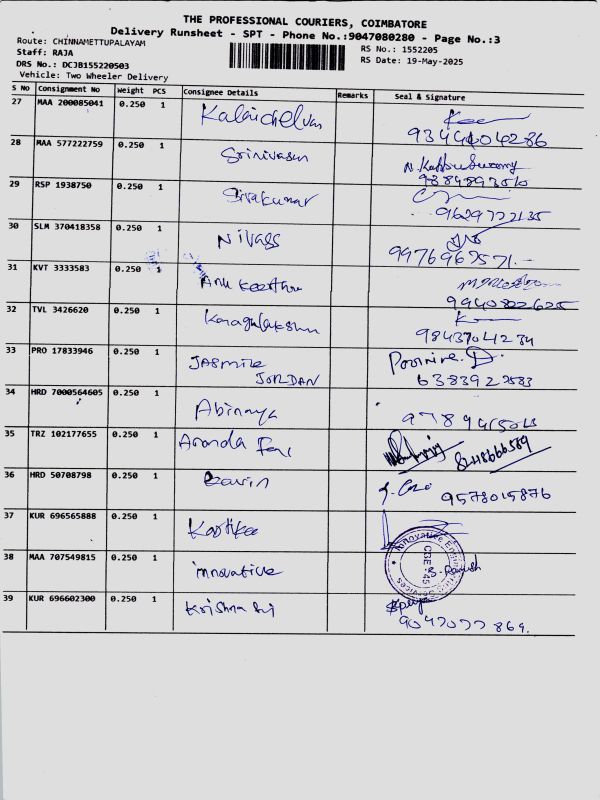 THE PROFESSIONAL COURIERS, COIMBATORE
Delivery Runsheet - SPT - Phone No.:9047080280 - Page No.:3
Route: CHINNAMETTUPALAYAM
RS No.: 1552205
Staff: RAJA
RS Date: 19-May-2025
DRS No.: DCJB155220503
Vehicle: Two Wheeler Delivery
S No Consignment No Weight PCS Consignee Details Remarks Seal & Signature
27 MAA 200085041 0.250 1 Kalaichelvan
9344404286
28 MAA 577222759 0.250 1 Srinivasan N. Kathu Swamy
29 RSP 1938750 0.250 1 Sivakumar
9629722135
30 SLM 370418358 0.250 1 Nivass
9976967571
31 KVT 3333583 0.250 1 Anu Keerthu
9940822625
32 TVL 3426620 0.250 1
9843704234
33 PRO 17833946 0.250 1 JASMINE Poornima. D.
JORDAN 6383922583
34 HRD 7000564605 0.250 1 Abinaya
35 TRZ 102177655 0.250 1 Ananda
36 HRD 50708798 0.250 1 Kavin
9578015876
37 KUR 696565888 0.250 1 Kartika
38 MAA 707549815 0.250 1 innovative
Innovative Engineering Services
CBE-45
39 KUR 696602300 0.250 1 Krishna Sri
9047077869.